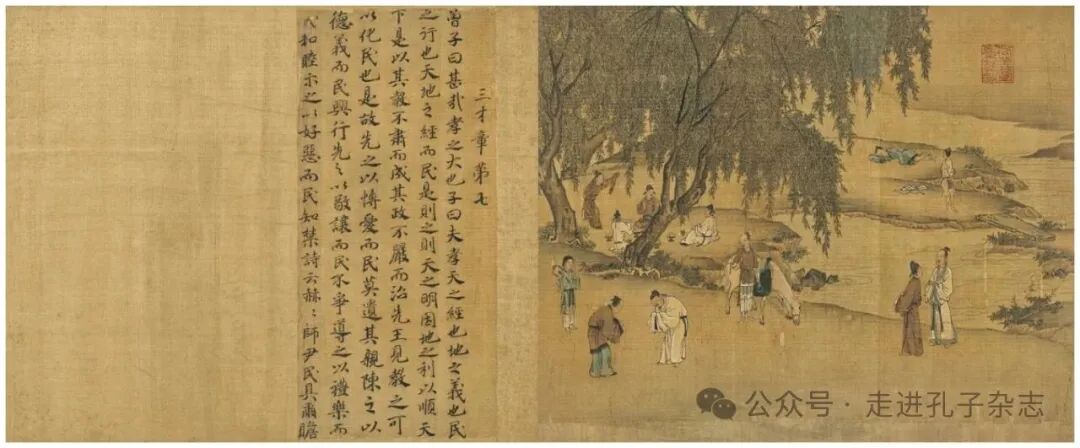 三才章第七
曾子曰甚哉孝之大也子曰夫孝天之經也地之義也民
之行也天地之經而民是則之則天之明因地之利以順天
下是以其教不肅而成其政不嚴而治先王見教之可
以化民也是故先之以博愛而民莫遺其親陳之以
德義而民興行先之以敬讓而民不爭導之以禮樂而
民和睦示之以好惡而民知禁詩云赫〻師尹民具爾瞻
公众号 · 走进孔子杂志